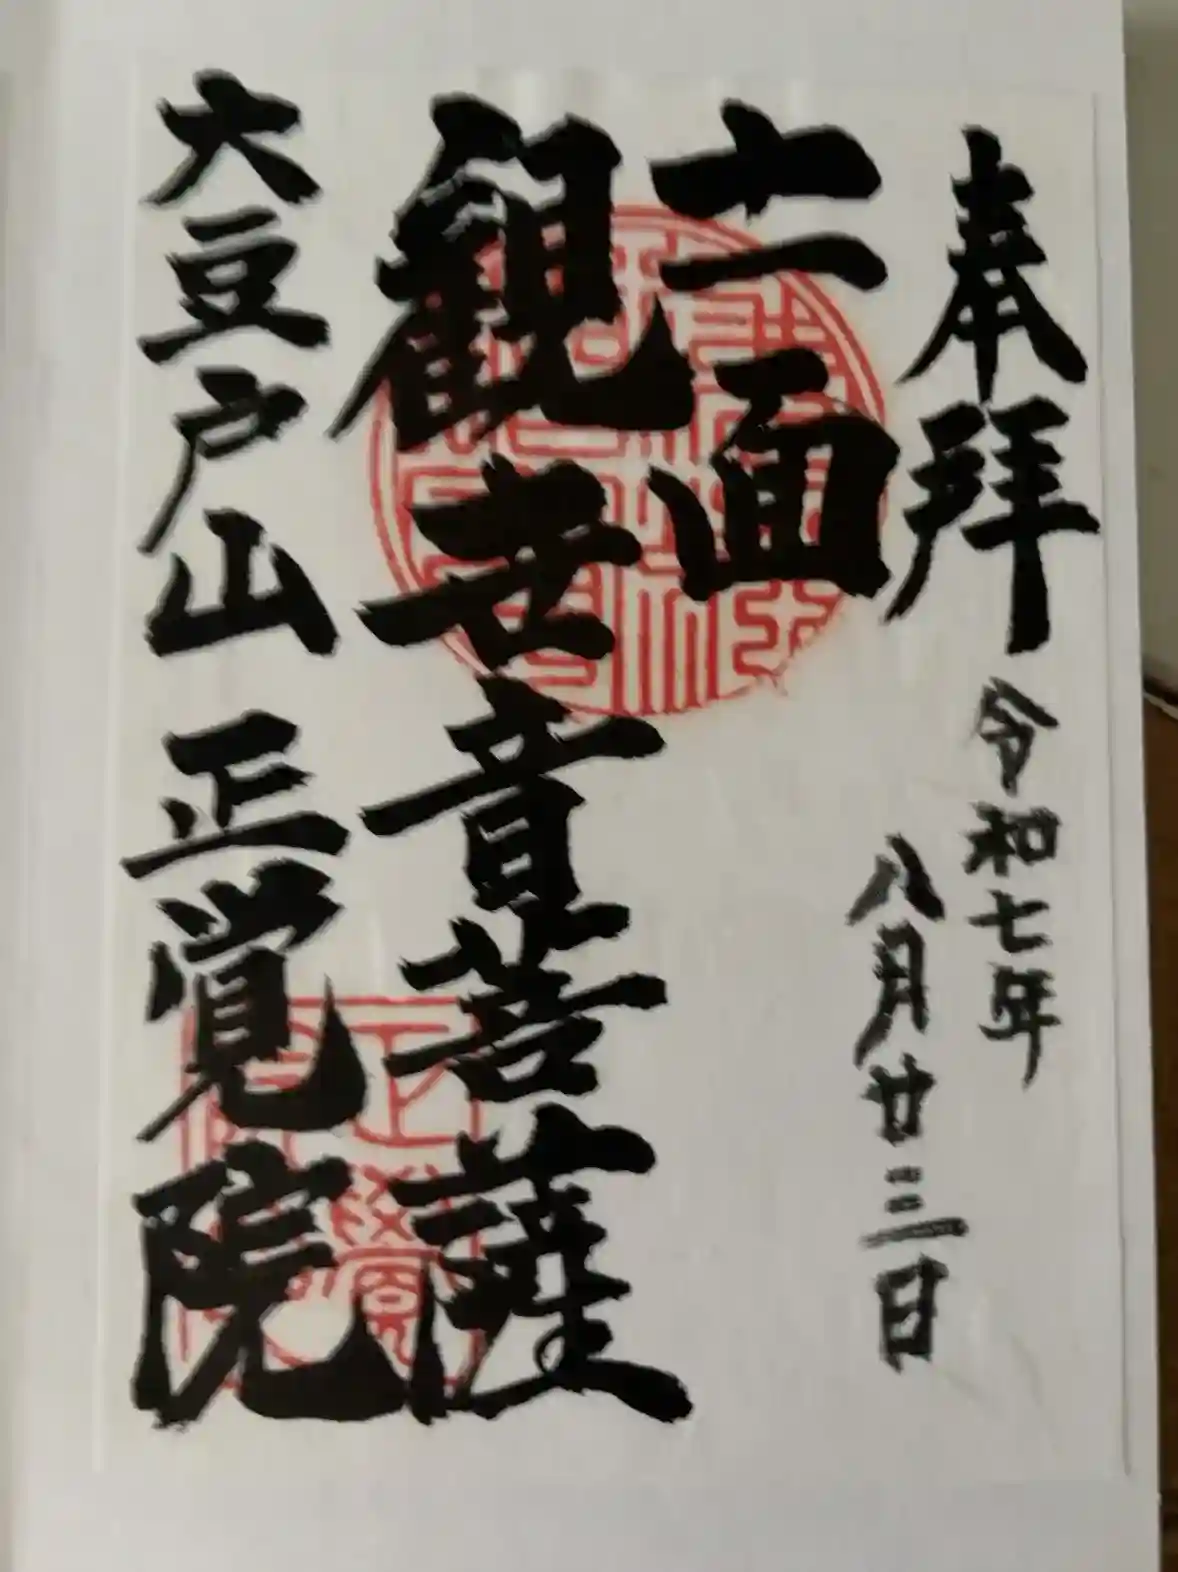 奉拝
令和七年
八月廿三日
十一面
観世音菩薩
大豆戸山
正覚院
正覺